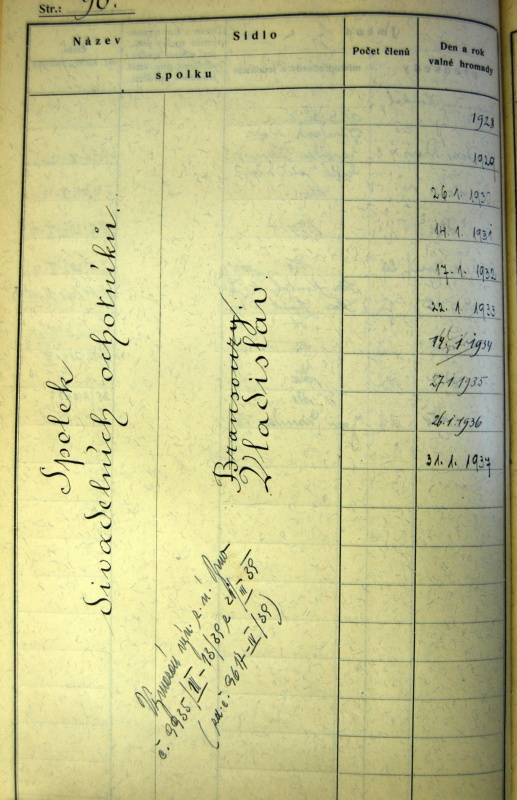 Str.: 90.
Název
Sídlo
spolku
Počet členů
Den a rok
valné hromady
1928
1929
26.1.193
14.1. 1931
17.1. 1932
22.1. 1933
14.1.1934
27.1.1935
26.1.1936
31.1. 1937
Spolek
divadelních ochotníků.
Bransouzy.
Vladislav.
Výnosem z. ú. Brno
č. 9935/III-13/39 z
(zn.č. 9617-IV/39)